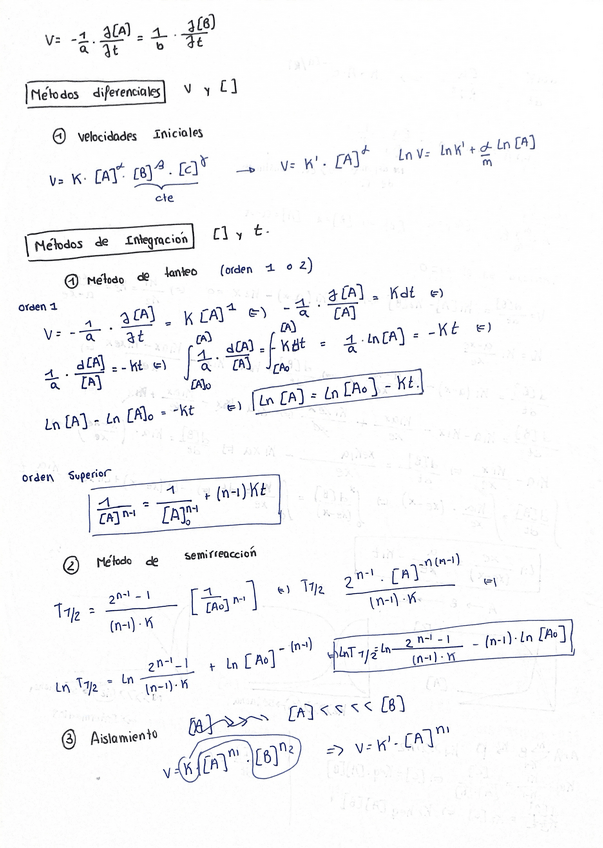 V = -1/a · ∂[A]/∂t = 1/b · ∂[B]/∂t
Métodos diferenciales V y []
① Velocidades Iniciales
V = K · [A]^α · [B]^β · [C]^γ → V = K' · [A]^α Ln V = Ln K' + α Ln [A]
cte m
Métodos de Integración [] y t.
① Método de tanteo (orden 1 o 2)
orden 1
V = -1/a · ∂[A]/∂t = K [A]^1 (=) -1/a · ∂[A]/[A] = Kdt (=)
1/a · d[A]/[A] = -Kt (=) ∫_[A]0^[A] 1/a · d[A]/[A] = ∫_[A0^[A] -Kdt = 1/a · Ln[A] = -Kt (=)
Ln [A] - Ln [A]₀ = -Kt (=) Ln [A] = Ln [A₀] - Kt.
orden Superior
1/[A]^n-1 = 1/[A]₀^n-1 + (n-1) Kt
② Método de semirreacción
T1/2 = 2^n-1 - 1/(n-1)·K [1/[A₀]^n-1] (=) T1/2 2^n-1 · [A]^-n(n-1)/(n-1)·K (=)
Ln T1/2 = Ln 2^n-1 - 1/(n-1)·K + Ln [A₀]^-(n-1) LnT1/2 = Ln 2^n-1 - 1/(n-1)·K - (n-1)·Ln [A₀]
③ Aislamiento [A] >>>> [A] < < < < [B]
V = K · [A]^n1 · [B]^n2 => V = K' · [A]^n1